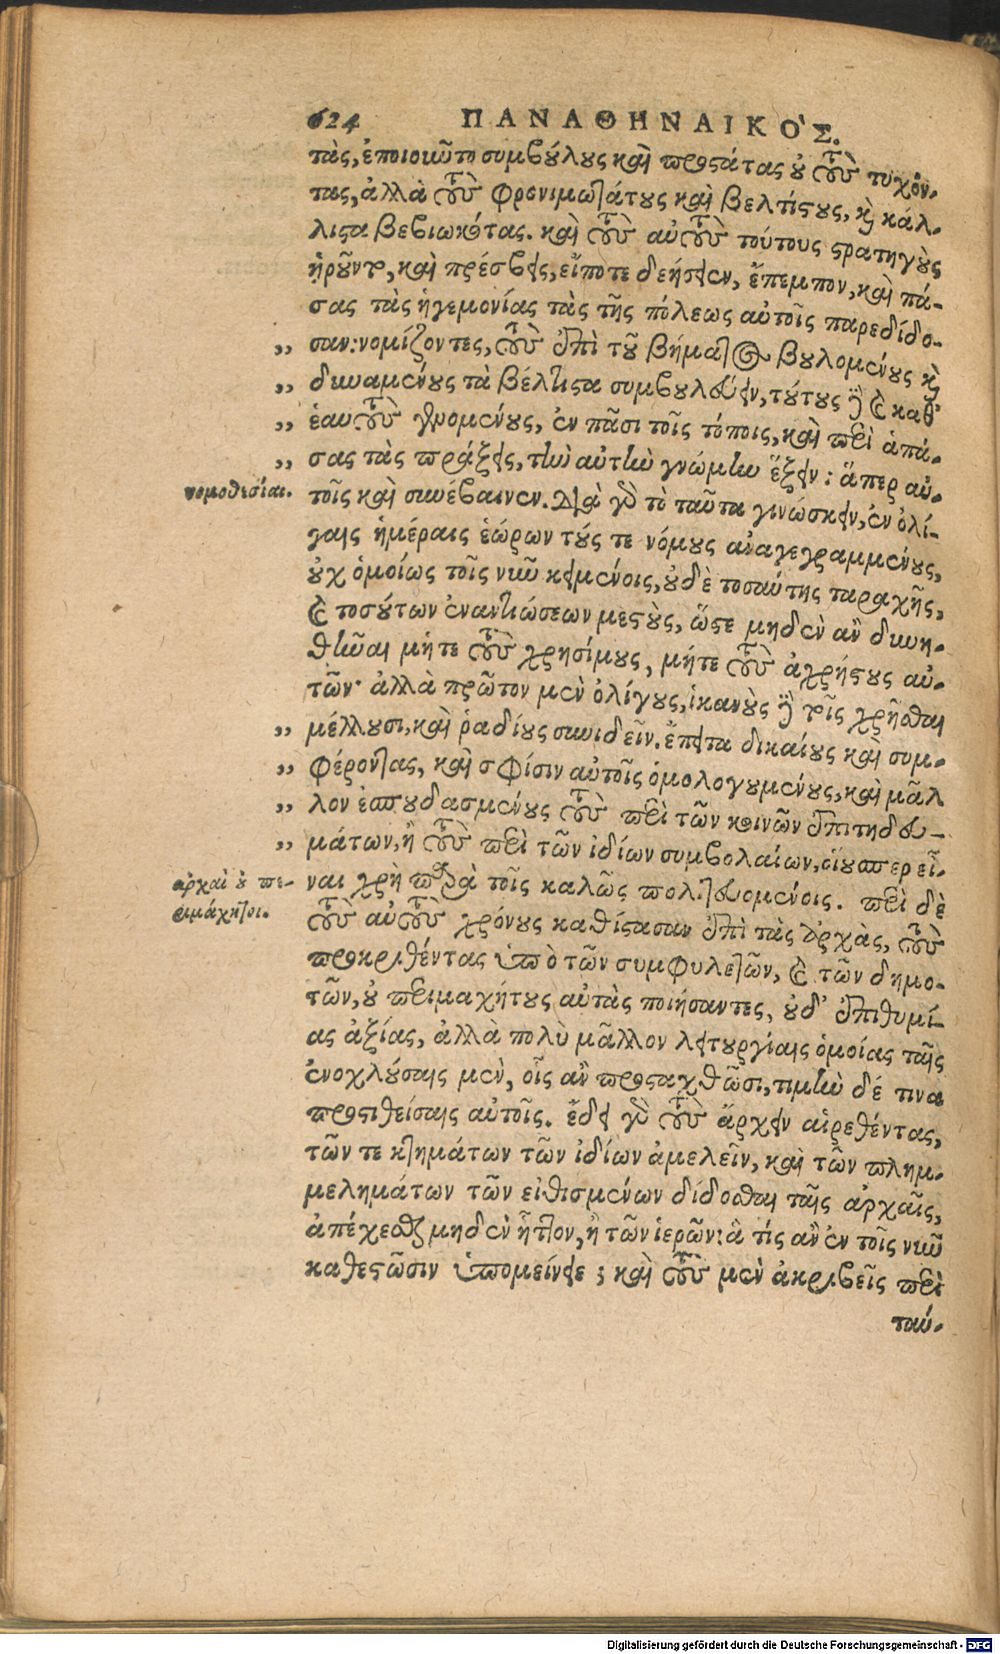 624 ΠΑΝΑΘΗΝΑΙΚΟ'Σ.
τὰς, ἐποιοῦντο συμβούλους καὶ προστάτας οὐ τοὺς τυχόν-
τας, ἀλλὰ τοὺς φρονιμωτάτους καὶ βελτίστους, καὶ κάλ-
λιστα βεβιωκότας. καὶ τοὺς αὐτοὺς τούτους στρατηγοὺς
ᾑροῦντο, καὶ πρέσβεις, εἴποτε δεήσειεν, ἔπεμπον, καὶ πά-
σας τὰς ἡγεμονίας τὰς τῆς πόλεως αὐτοῖς παρεδίδο-
„ σαν: νομίζοντες, τοὺς ἐπὶ τοῦ βήματος βουλομένους καὶ
„ δυναμένους τὰ βέλτιστα συμβουλεύειν, τούτους καὶ καθ'
„ ἑαυτοὺς γενομένους, ἐν πᾶσι τοῖς τόποις, καὶ περὶ ἁπά-
„ σας τὰς πράξεις, τὴν αὐτὴν γνώμην ἕξειν: ἅπερ αὐ-
νομοθεσίαι. τοῖς καὶ συνέβαινεν. Διὰ γὰρ τὸ ταῦτα γινώσκειν, ἐν ὀλί-
γαις ἡμέραις ἑώρων τούς τε νόμους ἀναγεγραμμένους,
οὐχ ὁμοίως τοῖς νῦν κειμένοις, οὐδὲ τοσαύτης ταραχῆς,
καὶ τοσούτων ἐναντιώσεων μεστοὺς, ὥστε μηδὲν ἂν δυνη-
θῆναι μήτε τοὺς χρησίμους, μήτε τοὺς ἀχρήστους αὐ-
τῶν· ἀλλὰ πρῶτον μὲν ὀλίγους, ἱκανοὺς δὲ τοῖς χρῆσθαι
„ μέλλουσι, καὶ ῥαδίους συνιδεῖν. ἔπειτα δικαίους καὶ συμ-
„ φέροντας, καὶ σφίσιν αὐτοῖς ὁμολογουμένους, καὶ μᾶλ
„ λον ἐσπουδασμένους τοὺς περὶ τῶν κοινῶν ἐπιτηδευ-
„ μάτων, ἢ τοὺς περὶ τῶν ἰδίων συμβολαίων, οἵουσπερ εἶ-
ἀρχαὶ οὐ πε- ναι χρὴ παρὰ τοῖς καλῶς πολιτευομένοις. περὶ δὲ
ριμάχητοι. τοὺς αὐτοὺς χρόνους καθίστασαν ἐπὶ τὰς ἀρχὰς, τοὺς
προκριθέντας ὑπὸ τῶν συμφυλετῶν, καὶ τῶν δημο-
τῶν, οὐ περιμαχήτους αὐτὰς ποιήσαντες, οὐδ' ἐπιθυμί-
ας ἀξίας, ἀλλὰ πολὺ μᾶλλον λειτουργίαις ὁμοίας ταῖς
ἐνοχλούσαις μὲν, οἷς ἂν προσταχθῶσι, τιμὴν δέ τινα
προστιθείσαις αὐτοῖς. ἔδει γὰρ τοὺς ἄρχειν αἱρεθέντας,
τῶν τε κτημάτων τῶν ἰδίων ἀμελεῖν, καὶ τῶν πλημ-
μελημάτων τῶν εἰθισμένων δίδοσθαι ταῖς ἀρχαῖς,
ἀπέχεσθαι μηδὲν ἧττον, ἢ τῶν ἱερῶν: ἃ τίς ἂν ἐν τοῖς νῦν
καθεστῶσιν ὑπομείνειε; καὶ τοὺς μὲν ἀκριβεῖς περὶ
ταύ-
Digitalisierung gefördert durch die Deutsche Forschungsgemeinschaft - DFG